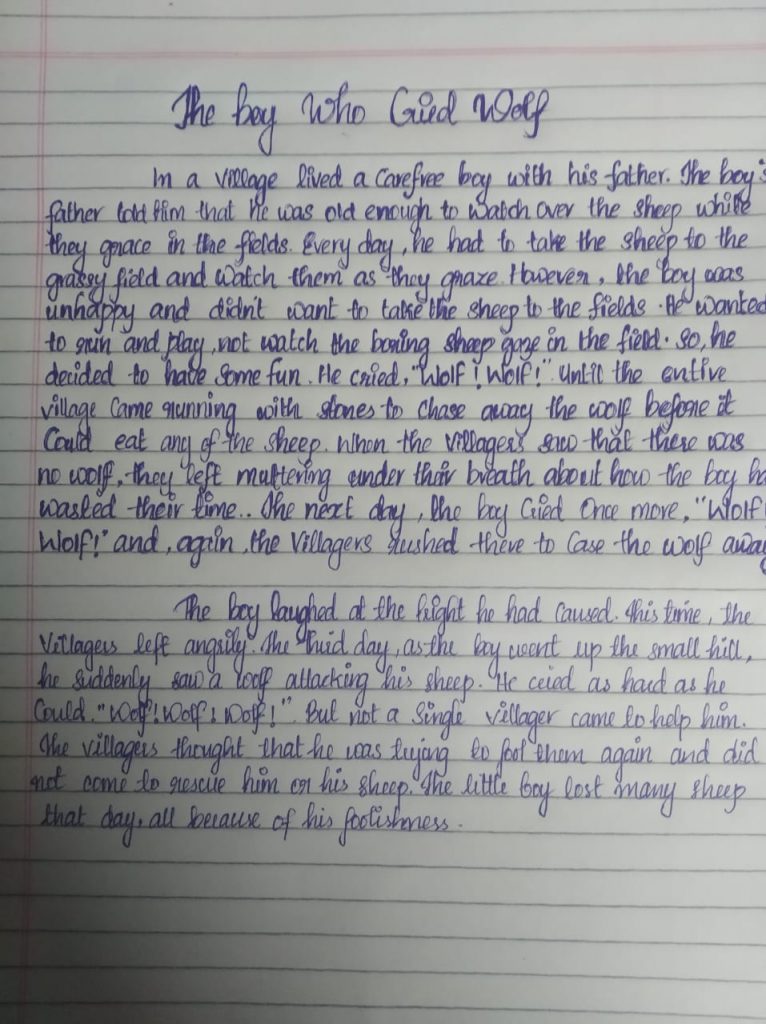 The boy Who Cried Wolf
In a village lived a carefree boy with his father. The boy's
father told him that he was old enough to watch over the sheep while
they grace in the fields. Every day, he had to take the sheep to the
grassy field and watch them as they graze. However, the boy was
unhappy and didn't want to take the sheep to the fields. He wanted
to run and play, not watch the boring sheep gaze in the field. So, he
decided to have some fun. He cried, "Wolf! Wolf!" Until the entire
village came running with stones to chase away the woolf before it
Could eat any of the sheep. When the villagers saw that there was
no woolf, they left muttering under their breath about how the boy ha
wasted their time.. The next day, the boy Cried Once more, "Wolf!
Wolf!" and, again, the Villagers rushed there to Case the wolf away
The boy laughed at the fright he had caused. This time, the
Villagers left angrily. The third day, as the boy went up the small hill,
he suddenly saw a woolf attacking his sheep. He cried as hard as he
Could, "Wolf! Wolf! Wolf!" But not a Single villager came to help him.
The villagers thought that he was trying to fool them again and did
not come to rescue him or his sheep. The little boy lost many sheep
that day, all because of his foolishness.